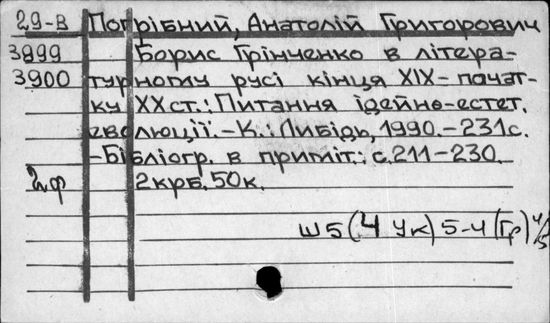 29-В Погрібний, Анатолій Григорович
3999 Борис Грінченко в літера-
3900 турному русі кінця XIX - почат-
ку XX ст.: Питання ідейно-естет.
еволюції. - К.: Либідь, 1990. - 231 с.
- Бібліогр. в приміт.: с. 211-230.
2ф 2 крб. 50 к.
Ш5(4Ук)5-4(Гр)4/5